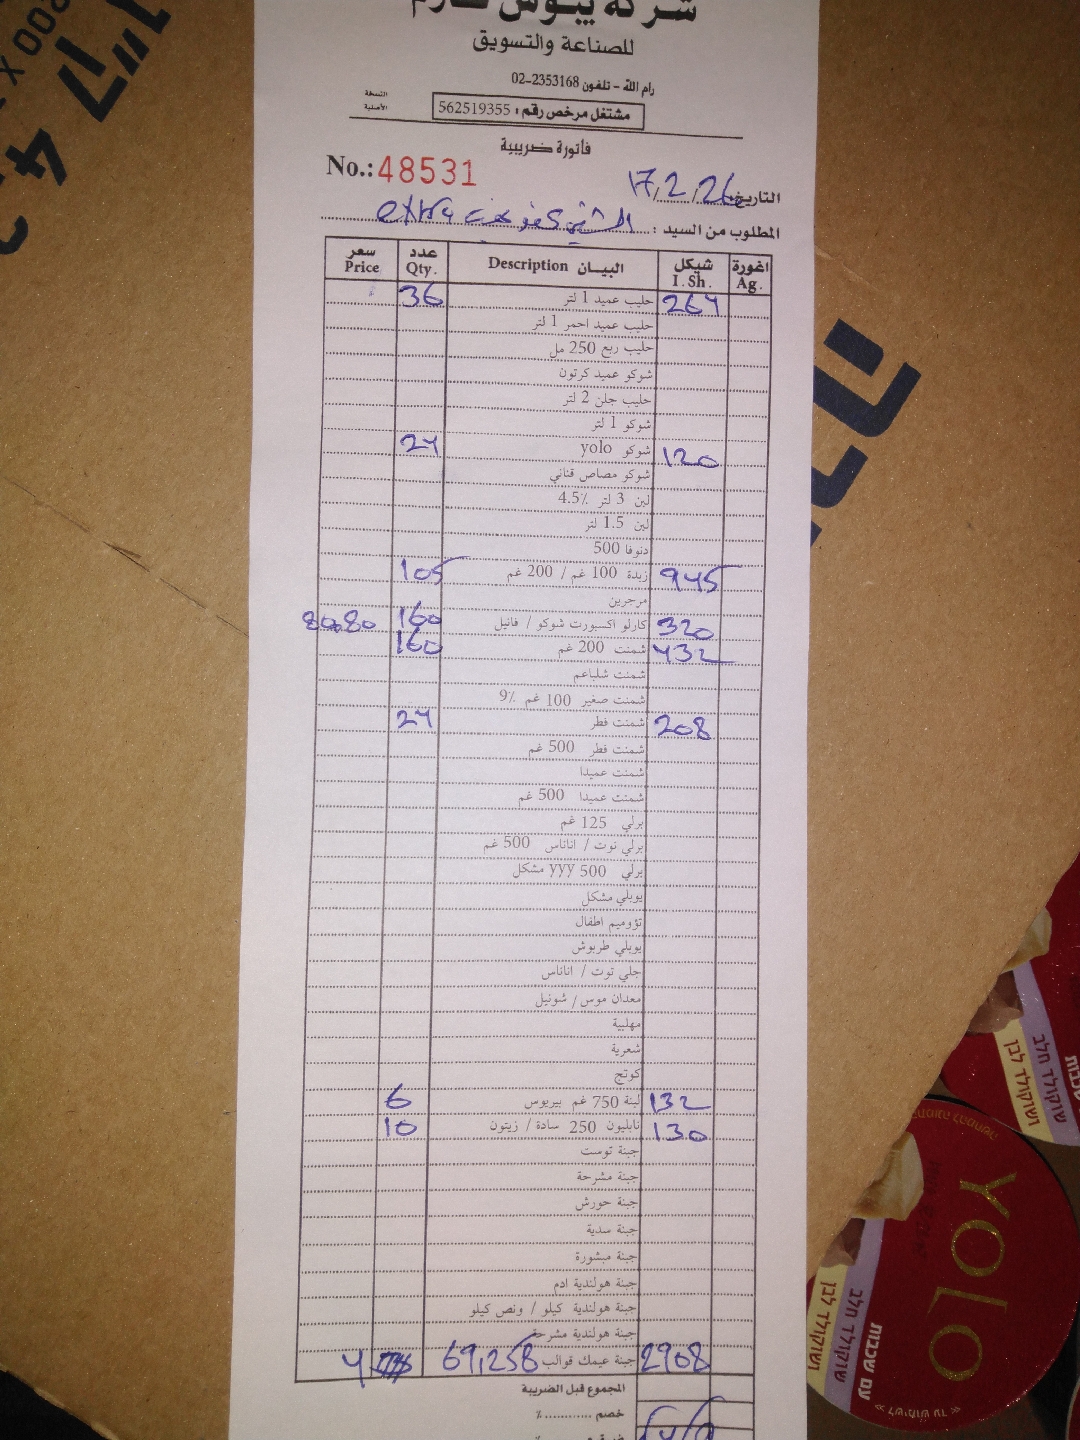 للصناعة والتسويق
رام الله - تلفون 2353168-02
النسخة الأصلية
مشتغل مرخص رقم : 562519355
فاتورة ضريبية
No.: 48531
التاريخ: 17/2/26
المطلوب من السيد : extra
سعر Price عدد Qty. البيـان Description شيكل I. Sh. اغورة Ag.
36 حليب عميد 1 لتر 264
حليب عميد احمر 1 لتر
حليب ربع 250 مل
شوكو عميد كرتون
حليب جلن 2 لتر
شوكو 1 لتر
24 شوكو yolo 120
شوكو مصاص قناني
لبن 3 لتر 4.5٪
لبن 1.5 لتر
دنوفا 500
105 زبدة 100 غم / 200 غم 945
مرجرين
160 كارلو اكسبورت شوكو / فانيل 320
160 شمنت 200 غم 432
شمنت شلباعم
شمنت صغير 100 غم 9٪
24 شمنت فطر 208
شمنت فطر 500 غم
شمنت عميدا
شمنت عميدا 500 غم
برلي 125 غم
برلي توت / اناناس 500 غم
برلي 500 yyy مشكل
يوبلي مشكل
تؤوميم اطفال
يوبلي طربوش
جلي توت / اناناس
معدان موس / شونيل
مهلبية
شعرية
كوتج
6 لبنة 750 غم بيريوس 132
10 نابليون 250 سادة / زيتون 130
جبنة توست
جبنة مشرحة
جبنة حورش
جبنة سدية
جبنة مبشورة
جبنة هولندية ادم
جبنة هولندية كيلو / ونص كيلو
جبنة هولندية مشرحة
4 69,258 جبنة عيمك قوالب 2908
المجموع قبل الضريبة
خصم ............٪
YOLO